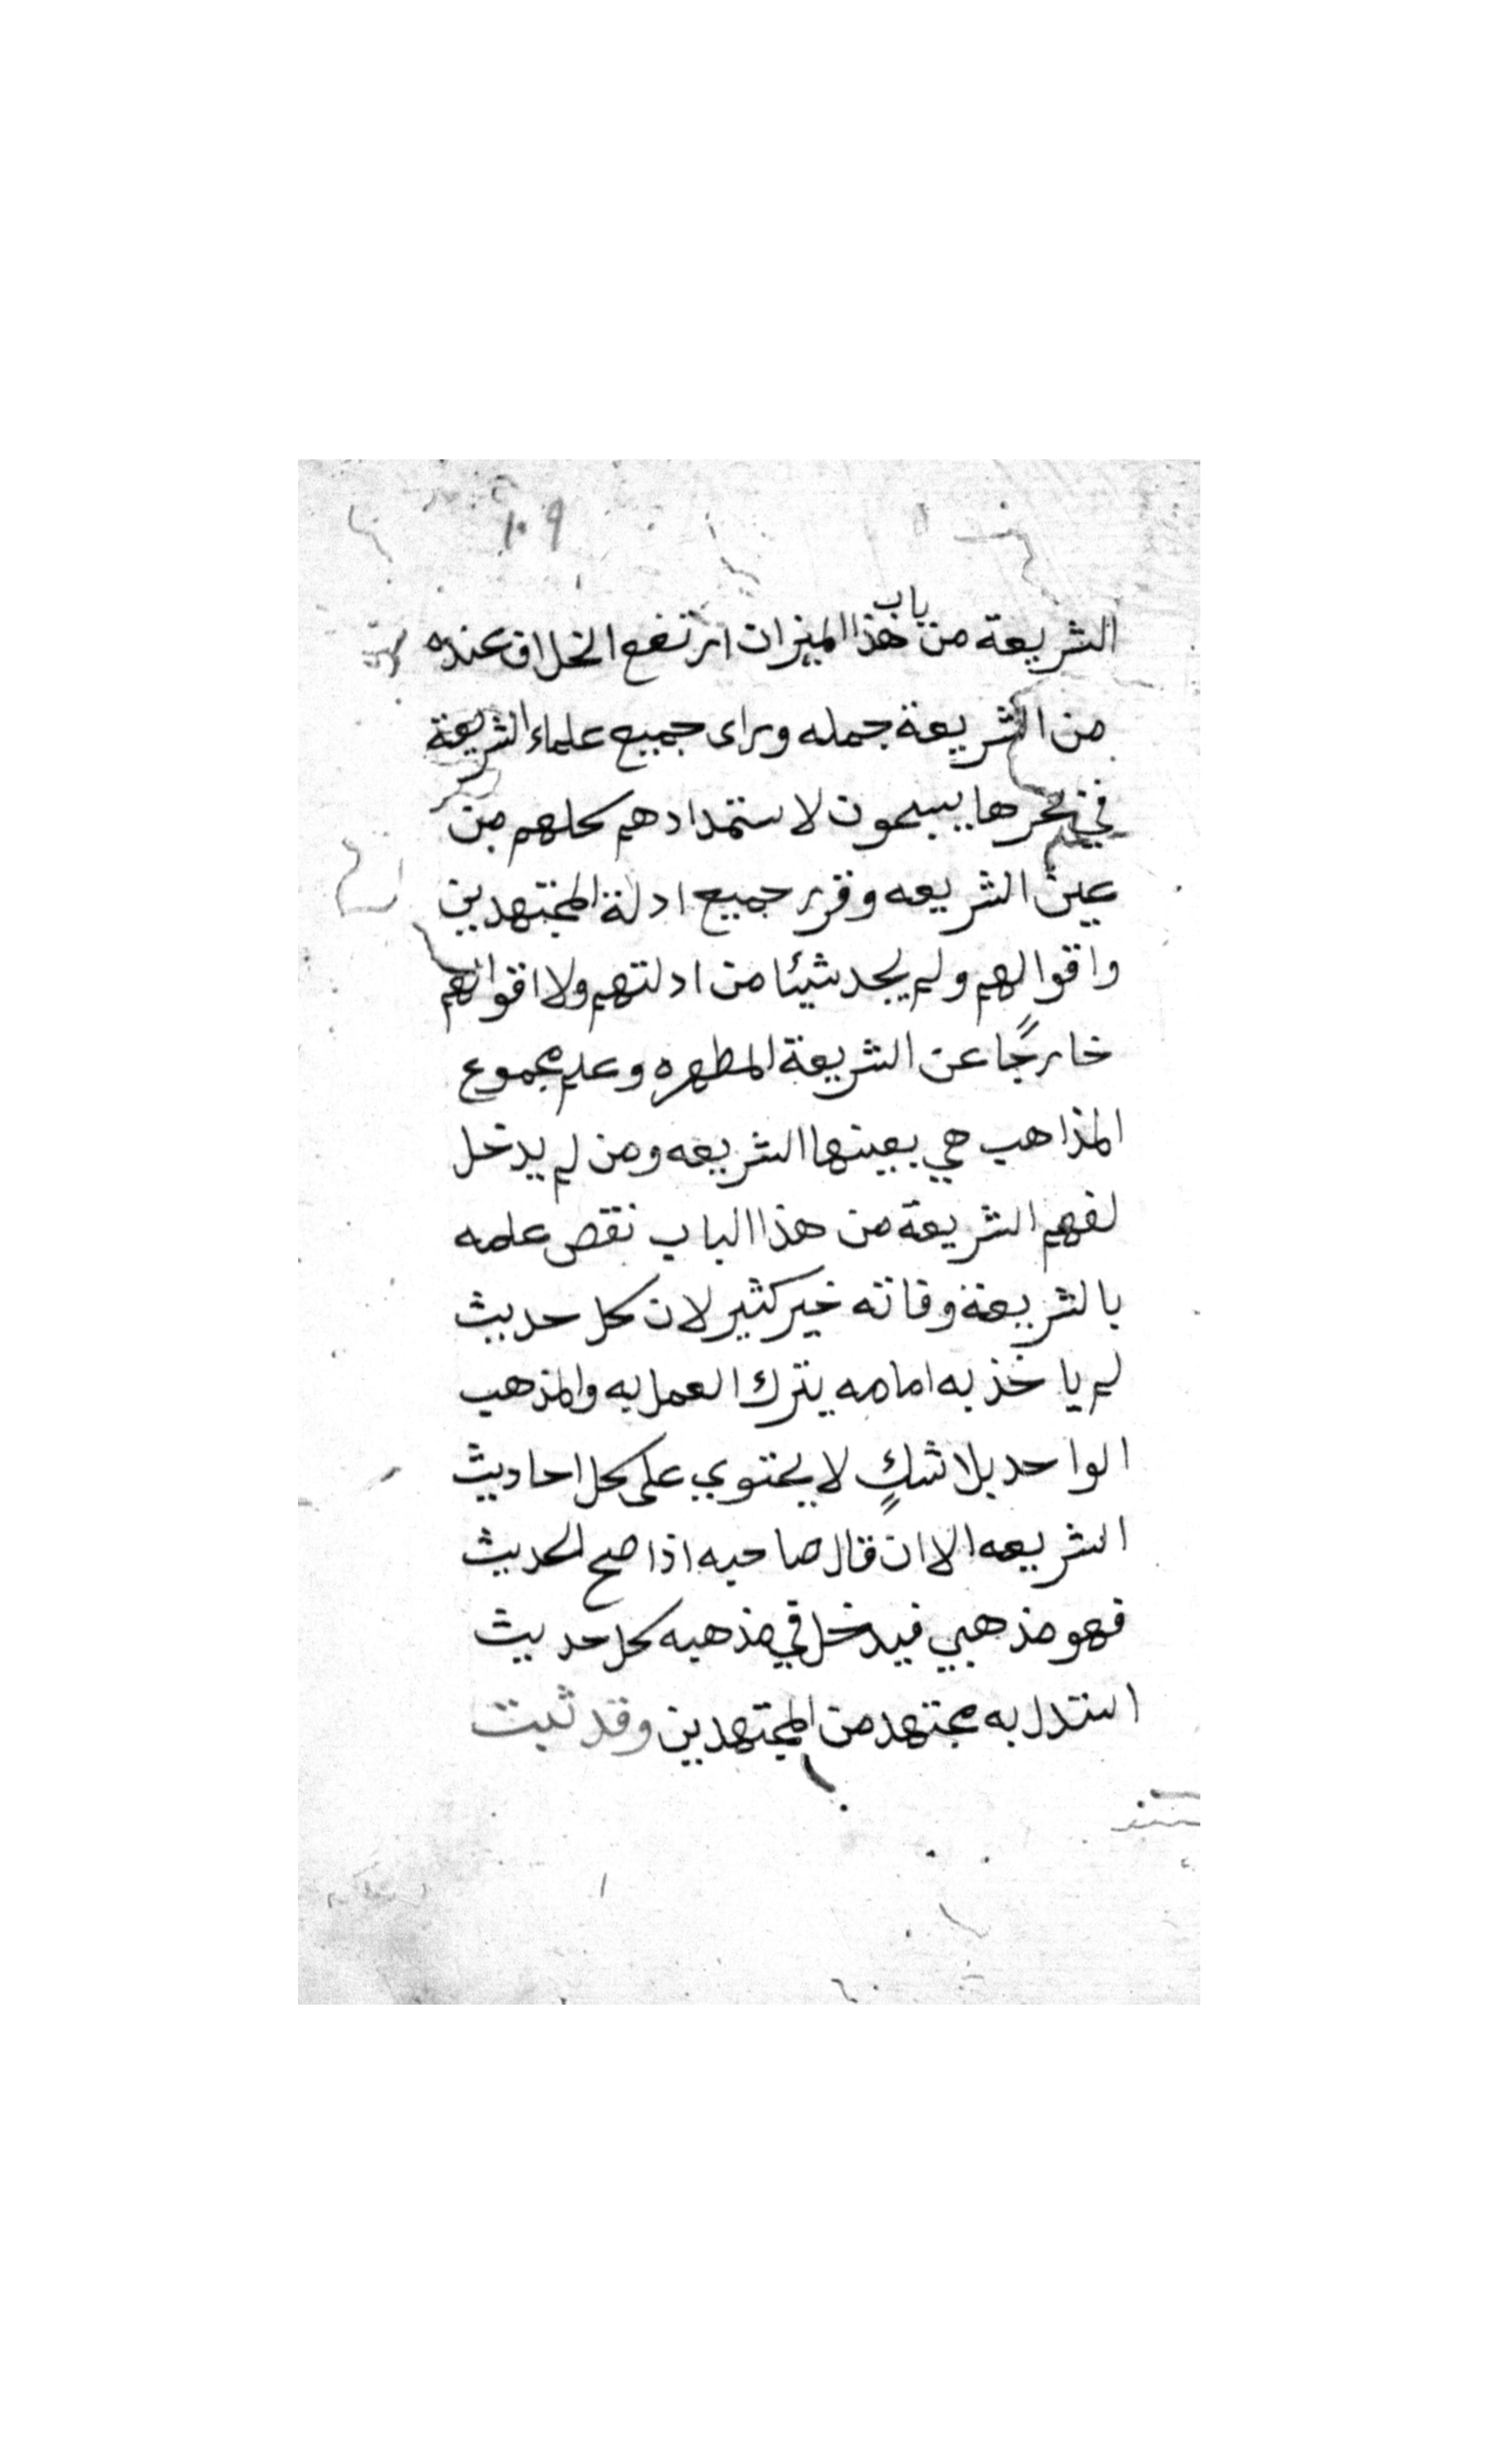 ١٠٩
باب
الشريعة من هذا الميزان ارتفع الخلاف عنده
من الشريعة جمله وراى جميع علماء الشريعة
في بحرها يسبحون لاستمدادهم كلهم من
عين الشريعه وقرر جميع ادلة المجتهدين
واقوالهم ولم يجد شيئا من ادلتهم ولا اقوالهم
خارجًا عن الشريعة المطهره وعلم مجموع
المذاهب هي بعينها الشريعه ومن لم يدخل
لفهم الشريعة من هذا الباب نقص علمه
بالشريعة وفاته خير كثير لان كل حديث
لم ياخذ به امامه يترك العمل به والمذهب
الواحد بلا شكٍ لا يحتوي على كل احاديث
الشريعه الا ان قال صاحبه اذا صح الحديث
فهو مذهبي فيدخل في مذهبه كل حديث
استدل به مجتهد من المجتهدين وقد ثبت